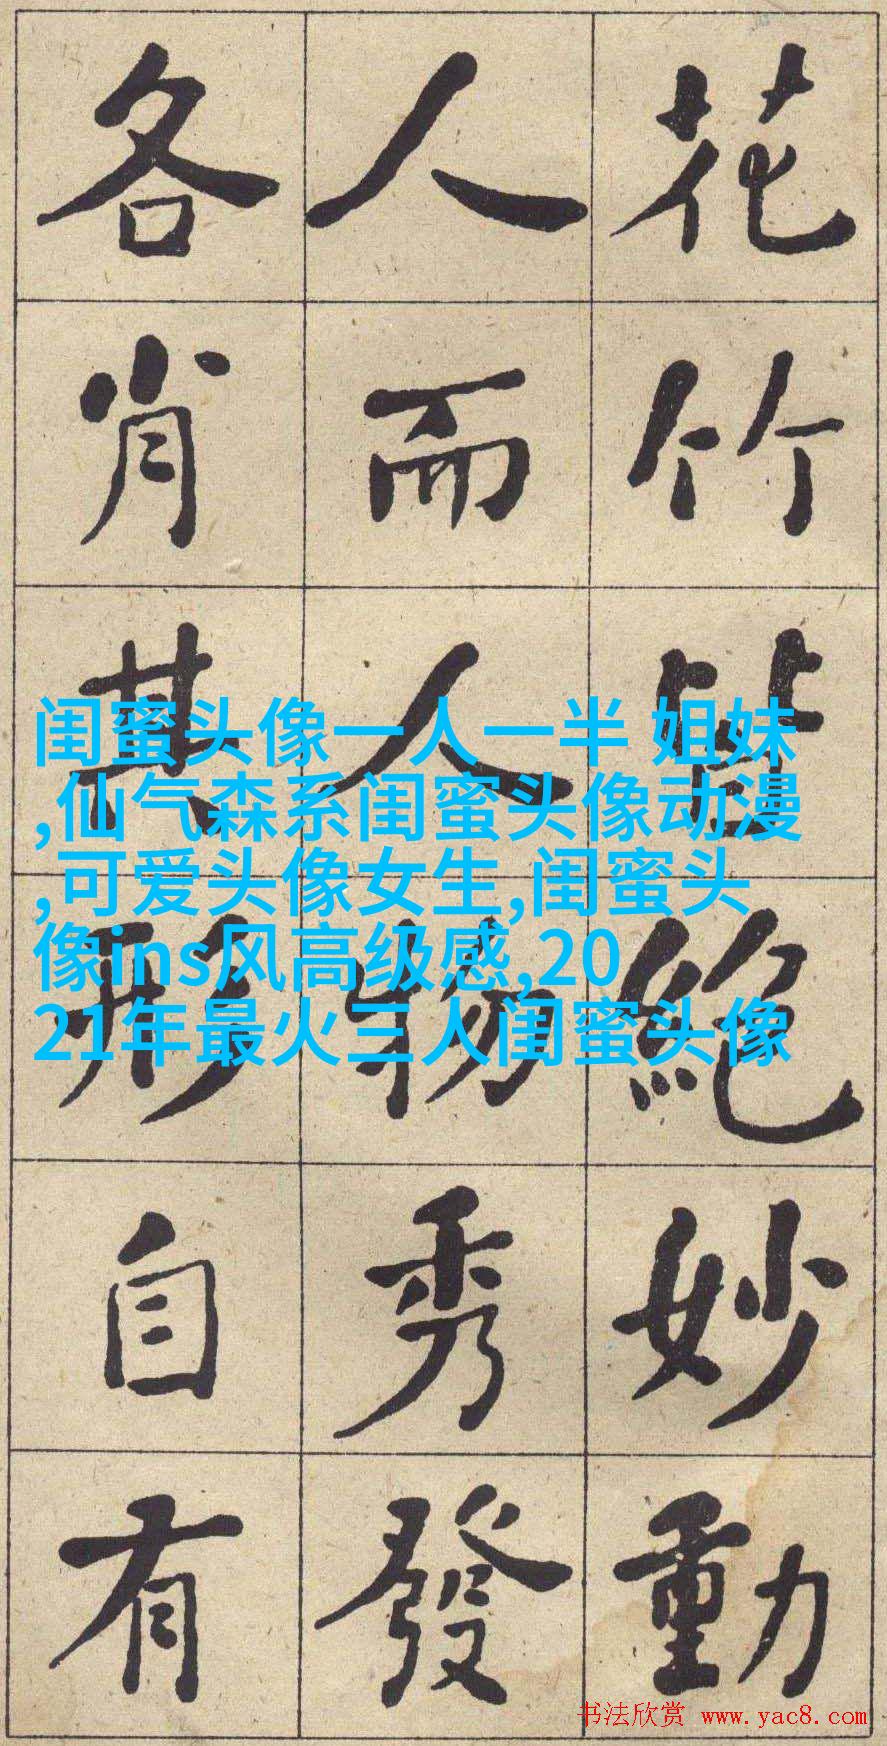 花竹皆絕妙動
人而人物秀發
各肖其形自有
闺蜜头像一人一半 姐妹
,仙气森系闺蜜头像动漫
,可爱头像女生,闺蜜头
像ins风高级感,20
21年最火三人闺蜜头像
书法欣赏 www.yac8.com